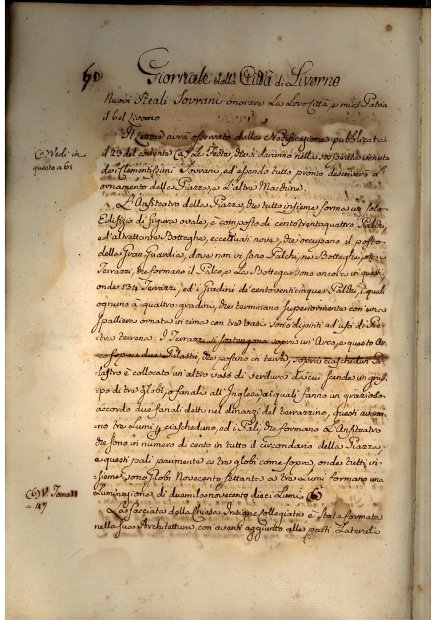 60
Giornale della Città di Livorno
Nuovi Reali Sovrani onorare La Loro Città, e mia Patria
il bel Livorno
Il Lettore avrà osservato dalla Notificazione pubblicata
il 29 del corrente (a) Le Feste, che si daranno nella venuta
dei Clementissimi Sovrani, ed essendo tutto pronto descriverò l'
ornamento della Piazza, e L'altre Macchine.
(a) Vedi in
questo a 61
L'Anfiteatro della Piazza, che tutto insieme forma un solo
Edifizio di figura ovale, è composto di centotrentaquattro Palchi,
ed altrettante Botteghe, eccettuati nove, che occupano il posto
della Gran Guardia, dove non vi sono Palchi, ne Botteghe,
Terrazzi, che formano il Palco, e La Bottega sono ancora in questi,
onde 134 Terrazzi, ed i gradini di centoventicinque Palchi, i quali
ognuno à quattro gradini, che terminano superiormente con una
spalliera ornata in cima con tre vasi sono dipinti ad uso di Pie-
tra serena: I Terrazzi si sostengono sopra un Arco, e questo Ar-
co sopra due Pilastri, che posano in terra, sopra ciascheduno Pi-
lastro è collocato un altro vaso di verdura da cui scende un grup-
po di tre globi, o fanali all'Inglese ai quali fanno un grazioso
accordo due fanali detti nel dinanzi del terrazzino, questi avran-
no tre Lumi ciascheduno, ed i Pali, che formano L'Anfiteatro
che sono in numero di cento in tutto il circondario della Piazza,
e questi pali parimente a tre globi come sopra, onde tutti in-
sieme sono globi Novecento settanta a tre Lumi formano una
Luminazione di duemila novecento dieci Lumi (b)
(b) V. Tomo II
a 47
La facciata della Chiesa Insigne Collegiata è stata formata
nella sua Architettura con aventi aggiunto alle parti Laterali